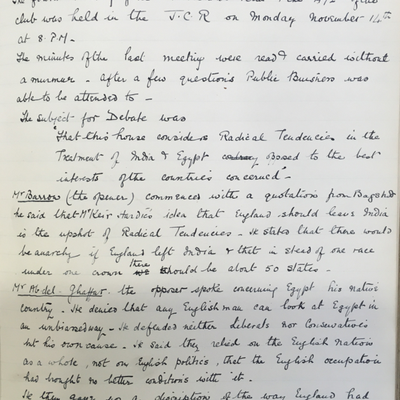 club was held in the J.C.R on Monday November 14th
at 8 P.M.
The minutes of the last meeting were read & carried without
a murmur. After a few questions Public Business was
able to be attended to -
The subject for Debate was
"That this house considers Radical Tendencies in the
Treatment of India & Egypt opposed to the best
interests of the countries concerned" -
Mr Barrow (the opener) commences with a quotation from Bagehot
he said that Mr Keir Hardie's idea that England should leave India
is the upshot of Radical Tendencies. He states that there would
be anarchy if England left India & that in stead of one race
under one crown there should be about 50 states.
Mr Abdel-Ghaffar the opposer spoke concerning Egypt his native
country. He denied that any Englishman can look at Egypt in
an unbiassed way. He defended neither liberals nor Conservatives
but his own cause. He said they relied on the English Nation
as a whole, not on English politics, that the English occupation
had brought no better conditions with it.
He then gave us a description of the way England had